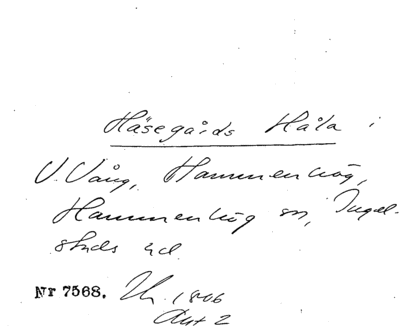 Häsegårds Håla i
V. Vång, Hammenhög,
Hammenhög sn, Ingel-
stads hd.
Nr 7568. Uh. 1806
Akt 2